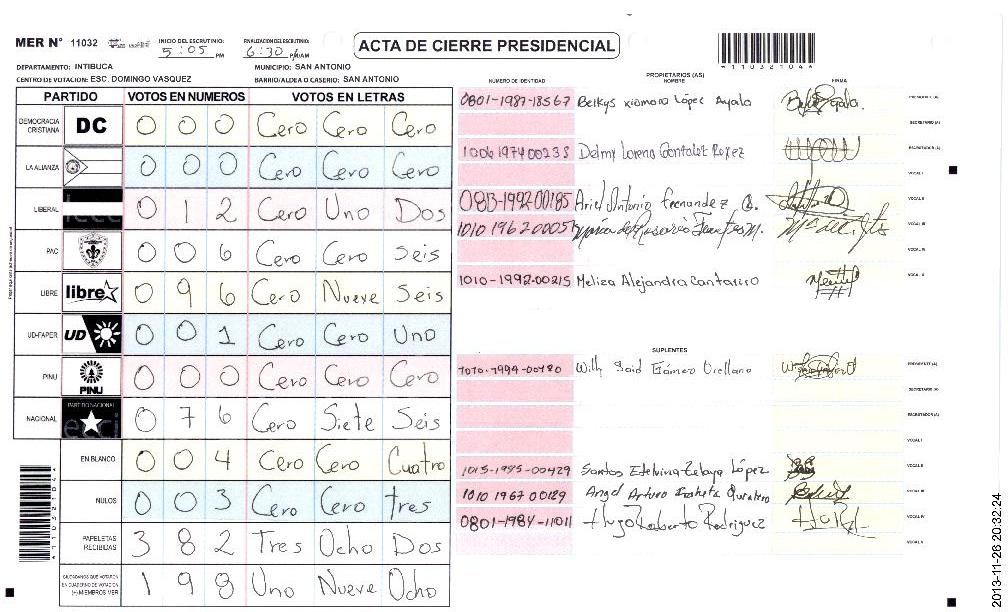 MER N° 11032 INICIO DEL ESCRUTINIO: 5:05 PM FINALIZACION DEL ESCRUTINIO: 6:30 P/M/AM
ACTA DE CIERRE PRESIDENCIAL
A11032104A
DEPARTAMENTO: INTIBUCA MUNICIPIO: SAN ANTONIO
CENTRO DE VOTACION: ESC. DOMINGO VASQUEZ BARRIO/ALDEA O CASERIO: SAN ANTONIO
PARTIDO VOTOS EN NUMEROS VOTOS EN LETRAS
DEMOCRACIA CRISTIANA DC 0 0 0 Cero Cero Cero
LA ALIANZA 0 0 0 Cero Cero Cero
LIBERAL 0 1 2 Cero Uno Dos
PAC 0 0 6 Cero Cero Seis
LIBRE libre 0 9 6 Cero Nueve Seis
UD-FAPER UD 0 0 1 Cero Cero Uno
PINU PINU 0 0 0 Cero Cero Cero
NACIONAL PARTIDO NACIONAL 0 7 6 Cero Siete Seis
EN BLANCO 0 0 4 Cero Cero Cuatro
NULOS 0 0 3 Cero Cero tres
PAPELETAS RECIBIDAS 3 8 2 Tres Ocho Dos
CIUDADANOS QUE VOTARON EN CUADERNO DE VOTACION (+) MIEMBROS MER 1 9 8 Uno Nueve Ocho
A11032104A
PROPIETARIOS (AS)
NUMERO DE IDENTIDAD NOMBRE FIRMA
0801-1987-18567 Belkys Xiomara López Ayala PRESIDENTE (A)
SECRETARIO (A)
1006 1974 00235 Delmy Lorena Gonzalez ESCRUTADOR (A)
VOCAL I
0813-1992 00185 Ariel Antonio Fernandez VOCAL II
1010 1962 00057 VOCAL III
VOCAL IV
1010-1992-00215 Meliza Alejandra Cantarero VOCAL V
SUPLENTES
1010-1994-00480 Said Gámez Orellana PRESIDENTE (A)
SECRETARIO (A)
ESCRUTADOR (A)
VOCAL I
1015-1985-00429 Santos Etelvina Zelaya López VOCAL II
1010 1967 00129 Angel Arturo VOCAL III
0801-1984-11011 Hugo Roberto Rodriguez VOCAL IV
VOCAL V
2013-11-26 20:32:24